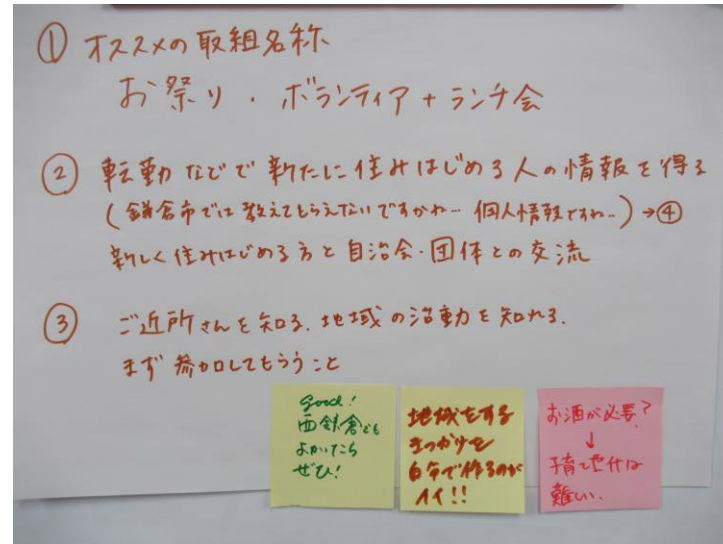 ① オススメの取組名称
お祭り・ボランティア+ランチ会
② 転勤などで新たに住みはじめる人の情報を得る
(鎌倉市では教えてもらえないですかね… 個人情報ですね…)→④
新しく住みはじめる方と自治会・団体との交流
③ ご近所さんを知る、地域の活動を知れる、
まず参加してもらうこと
good!
西鎌倉でも
よかったら
ぜひ!
地域をする
きっかけを
自分で作るのが
イイ!!
お酒が必要?
↓
子育て世代は
難しい.